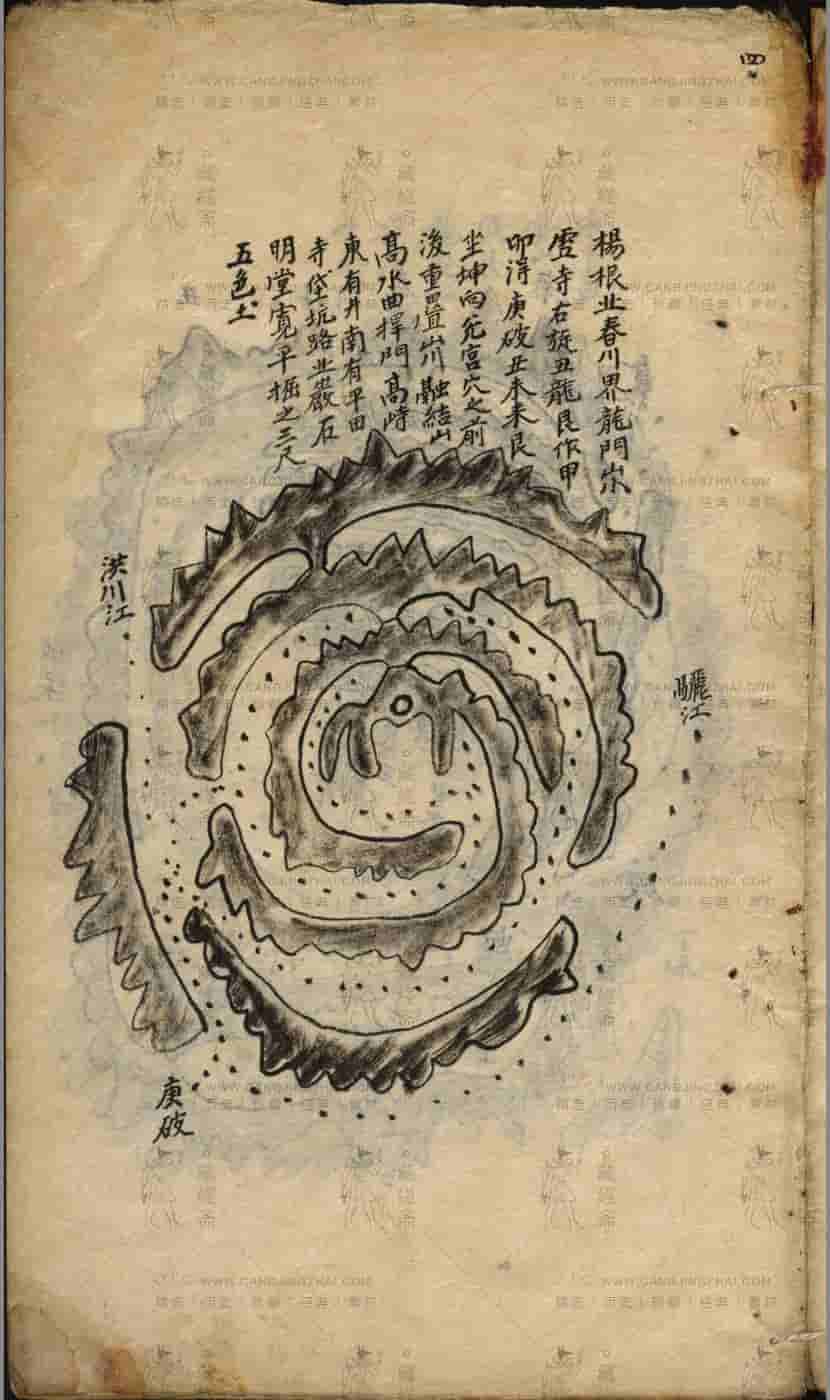 四
楊根北春川界龍門山
虛寺右旋丑龍艮作甲
卯得庚破丑木來艮
坐坤向兊宮穴之前
後重疊山川融結山
高水曲捍門高峙
東有井南有平田
寺垈坑路北巖石
明堂寬平掘之三尺
五色土
洪川江
驪江
庚破
WWW.CANGJINGZHAI.COM
藏經斋